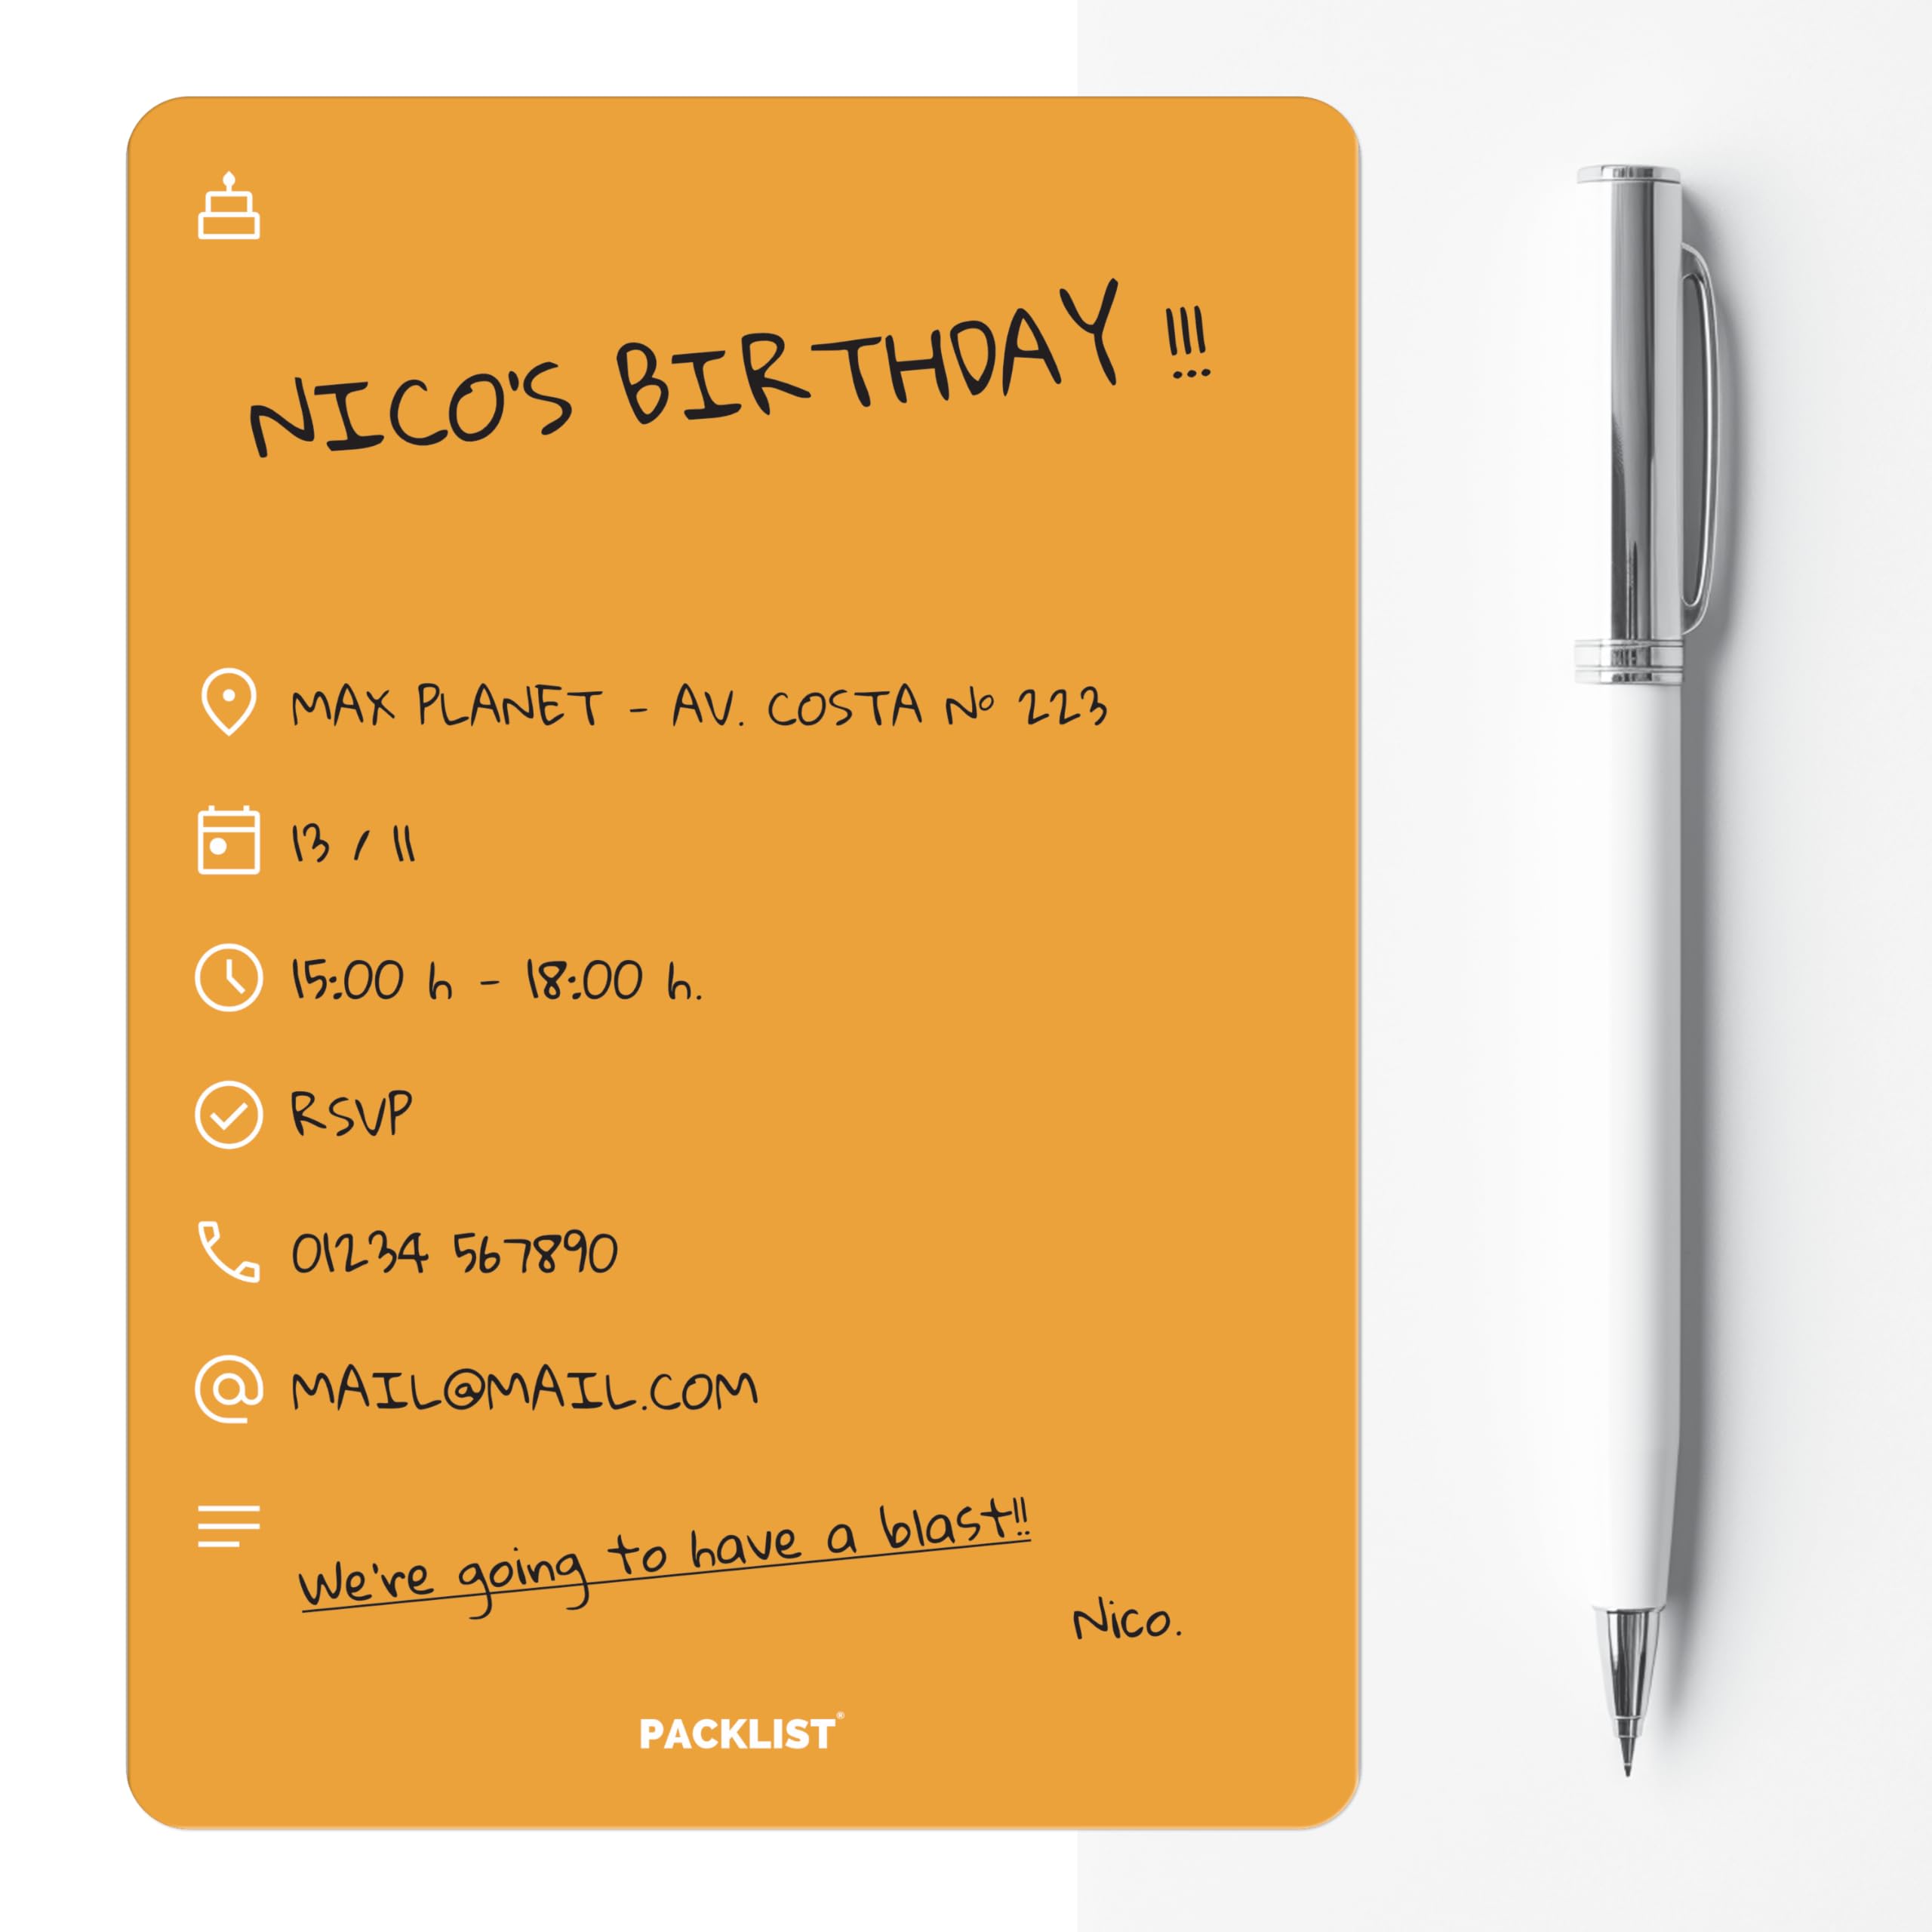 NICO'S BIRTHDAY !!!
MAX PLANET - AV. COSTA Nº 223
13 / 11
15:00 h - 18:00 h.
RSVP
01234 567890
MAIL@MAIL.COM
We're going to have a blast!!
Nico.
PACKLIST®